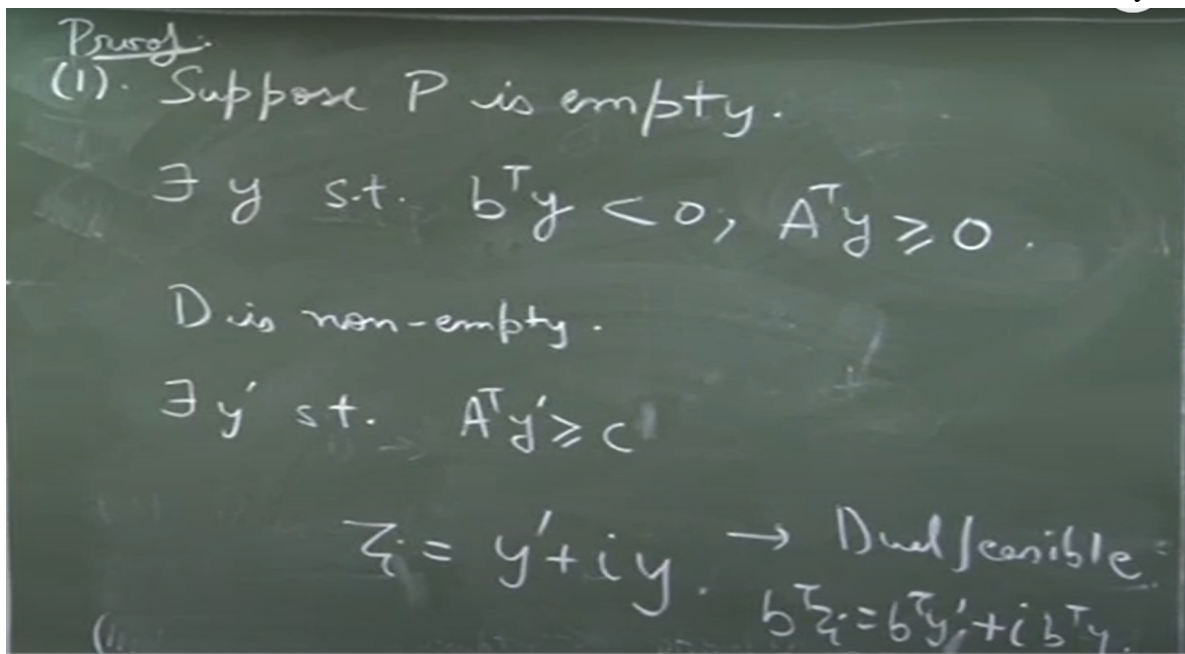 Proof:
(1). Suppose P is empty.
∃ y s.t. bᵀy < 0, Aᵀy ⩾ 0.
D is non-empty.
∃ y' s.t. Aᵀy' ⩾ c
zᵢ = y' + i y. → Dual feasible
bᵀzᵢ = bᵀy' + i bᵀy.